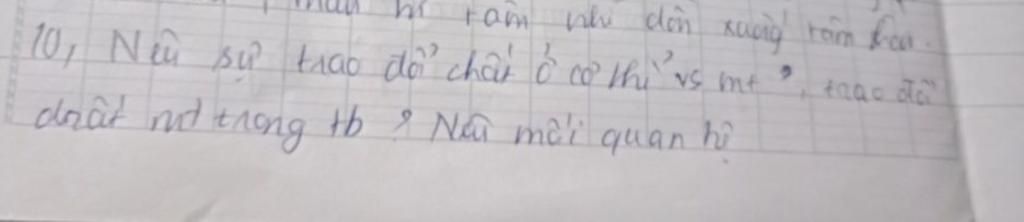 máu hít tâm như dồn xuống tâm
10, Nêu sự trao đổi chất ở cơ thể vs mt ?, trao đổi
chất nd trong tb ? Nêu mối quan hệ